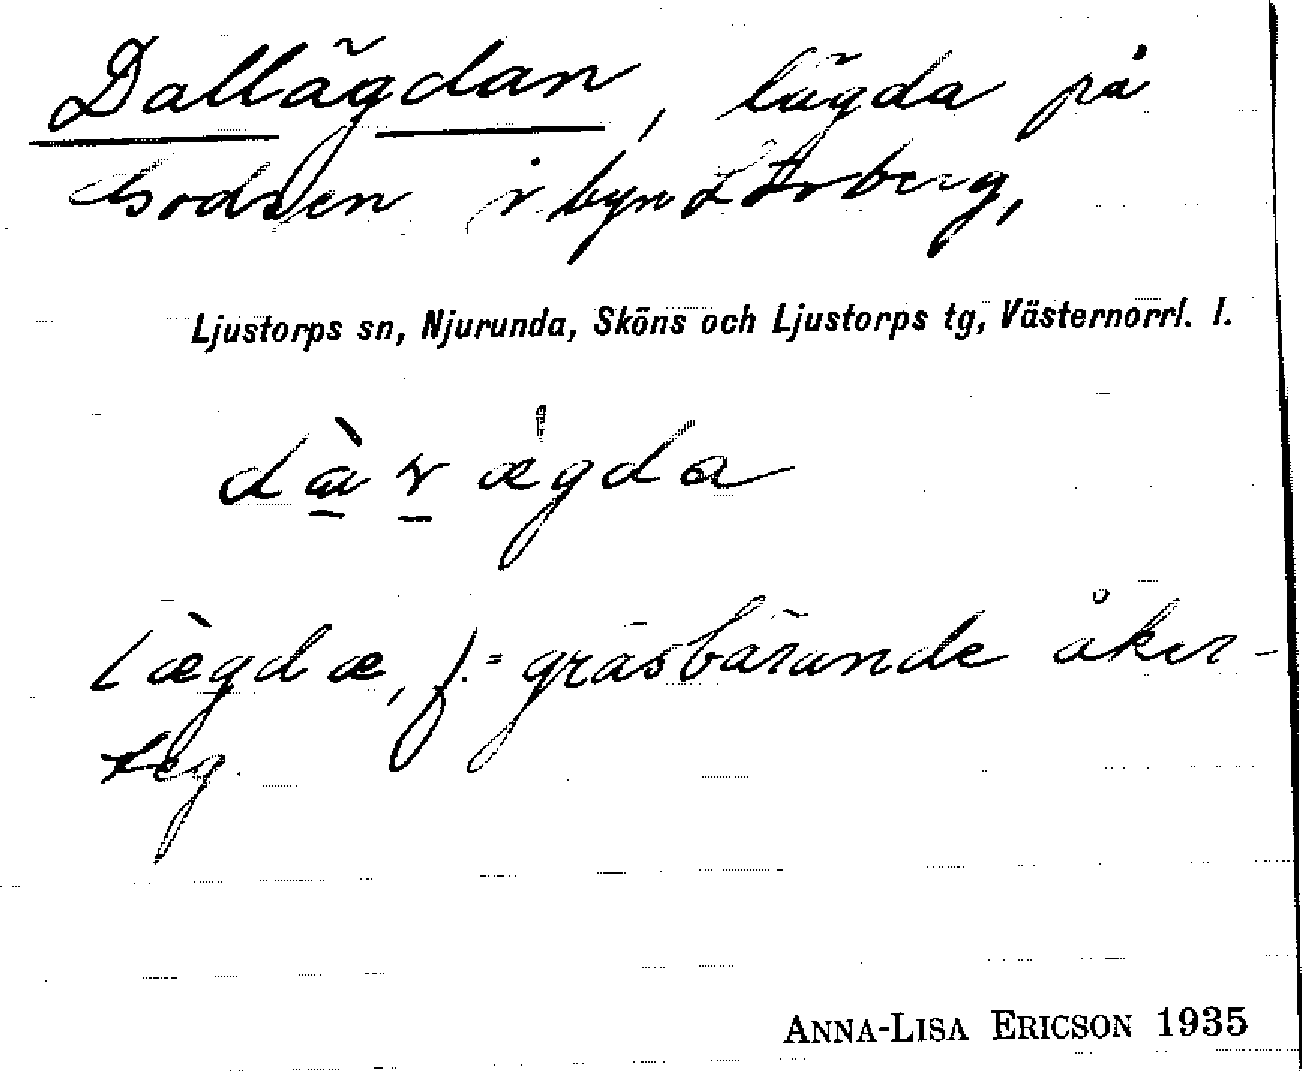 Dallägdan, lägda på
bodsen i byn Storberg,
Ljustorps sn, Njurunda, Sköns och Ljustorps tg, Västernorrl. l.
ægda
lægdæ, f. = gräsbärande åker-
teg
ANNA-LISA ERICSON 1935